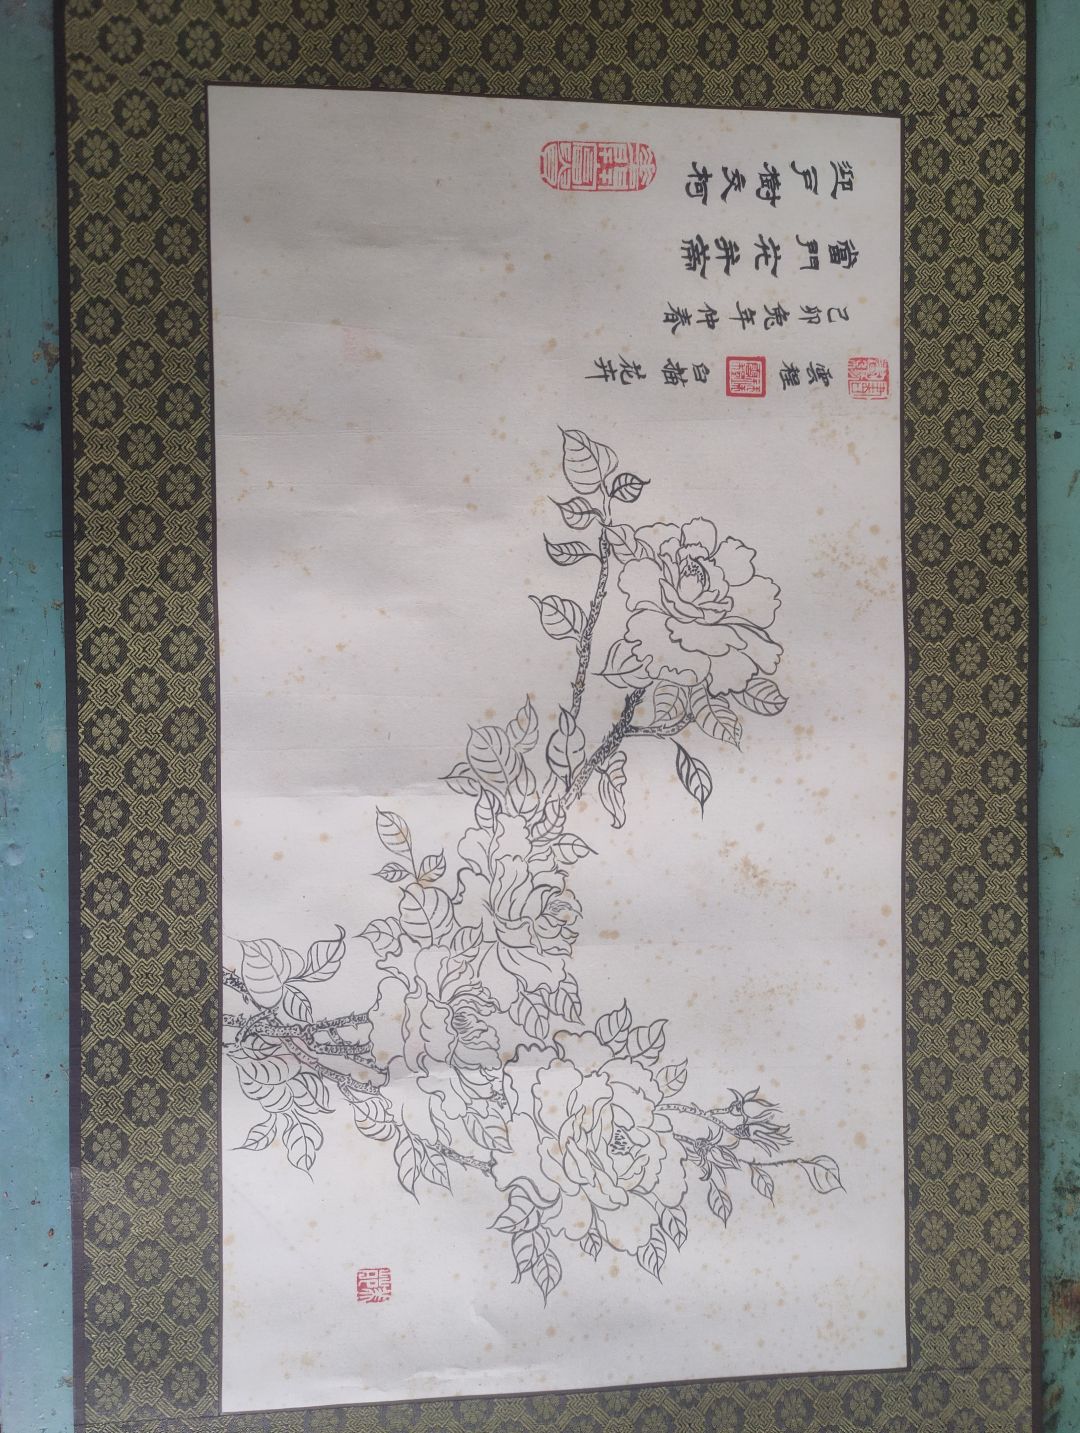 迎戶樹交柯
當門花并蒂
己卯兔年仲春
雲程 白描花卉